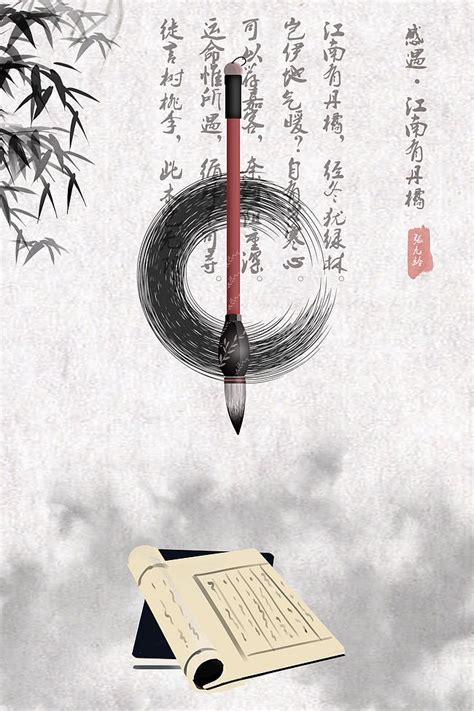 感遇·江南有丹橘
张九龄
江南有丹橘，经冬犹绿林。
岂伊地气暖？自有寒心。
可以荐嘉客，奈阻重深。
运命惟所遇，循可寻。
徒言树桃李，此木